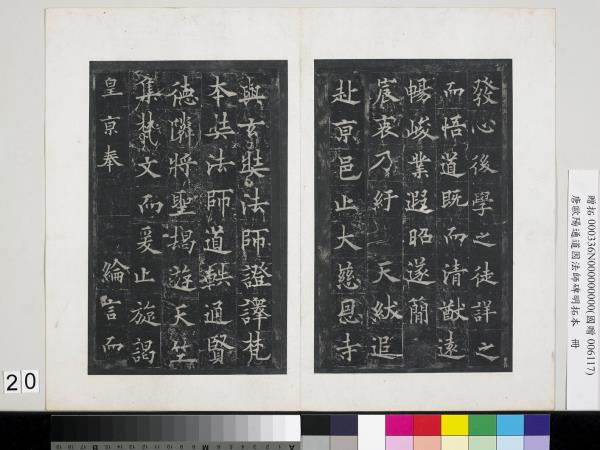 發心後學之徒詳之
而悟道既而清猷遠
暢峻業遐昭遂簡
宸衷乃紆 天紱追
赴京邑止大慈恩寺
與玄奘法師證譯梵
本奘法師道軼通賢
德隣將聖揭旌天竺
集梵文而爰止旋謁
皇京奉 綸言而
贈拓 000336N000000000(國贈 006117)
唐歐陽通道因法師碑明拓本 冊
20